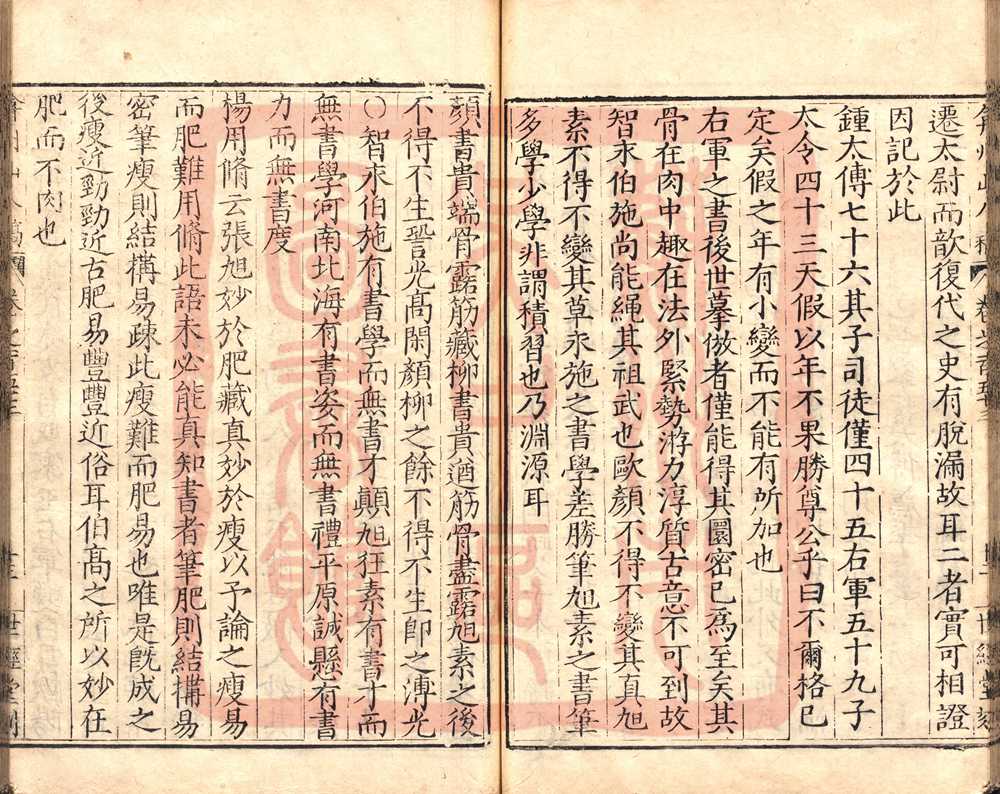 遷太尉而歆復代之史有脫漏故耳二者實可相證
因記於此
鍾太傅七十六其子司徒僅四十五右軍五十九子
太令四十三天假以年不果勝尊公乎曰不爾格已
定矣假之年有小變而不能有所加也
右軍之書後世摹倣者僅能得其圜密已為至矣其
骨在肉中趣在法外緊勢游力淳質古意不可到故
智永伯施尚能繩其祖武也歐顏不得不變其真旭
素不得不變其草永施之書學差勝筆旭素之書筆
多學少學非謂積習也乃淵源耳
顏書貴端骨露筋藏柳書貴遒筋骨盡露旭素之後
不得不生䛒光高閑顏柳之餘不得不生即之溥光
○智永伯施有書學而無書才顛旭狂素有書才而
無書學河南北海有書姿而無書禮平原誠懸有書
力而無書度
楊用脩云張旭妙於肥藏真妙於瘦以予論之瘦易
而肥難用脩此語未必能真知書者筆肥則結構易
密筆瘦則結構易疎此瘦難而肥易也唯是旣成之
後瘦近勁勁近古肥易豐豐近俗耳伯高之所以妙在
肥而不肉也
世經堂刻